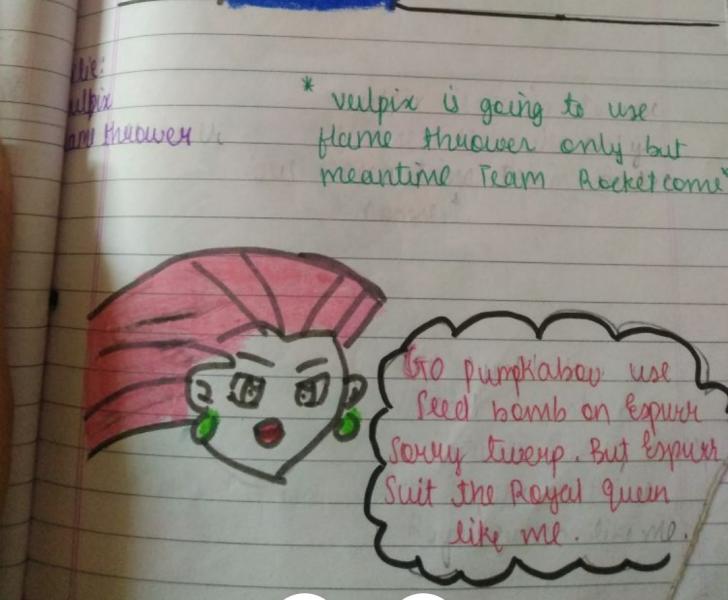 thrower
* vulpix is going to use
flame thrower only but
meantime Team Rocket come*
Go pumpkaboo use
Seed bomb on Espurr
Sorry twerp. But Espurr
Suit the Royal queen
like me.